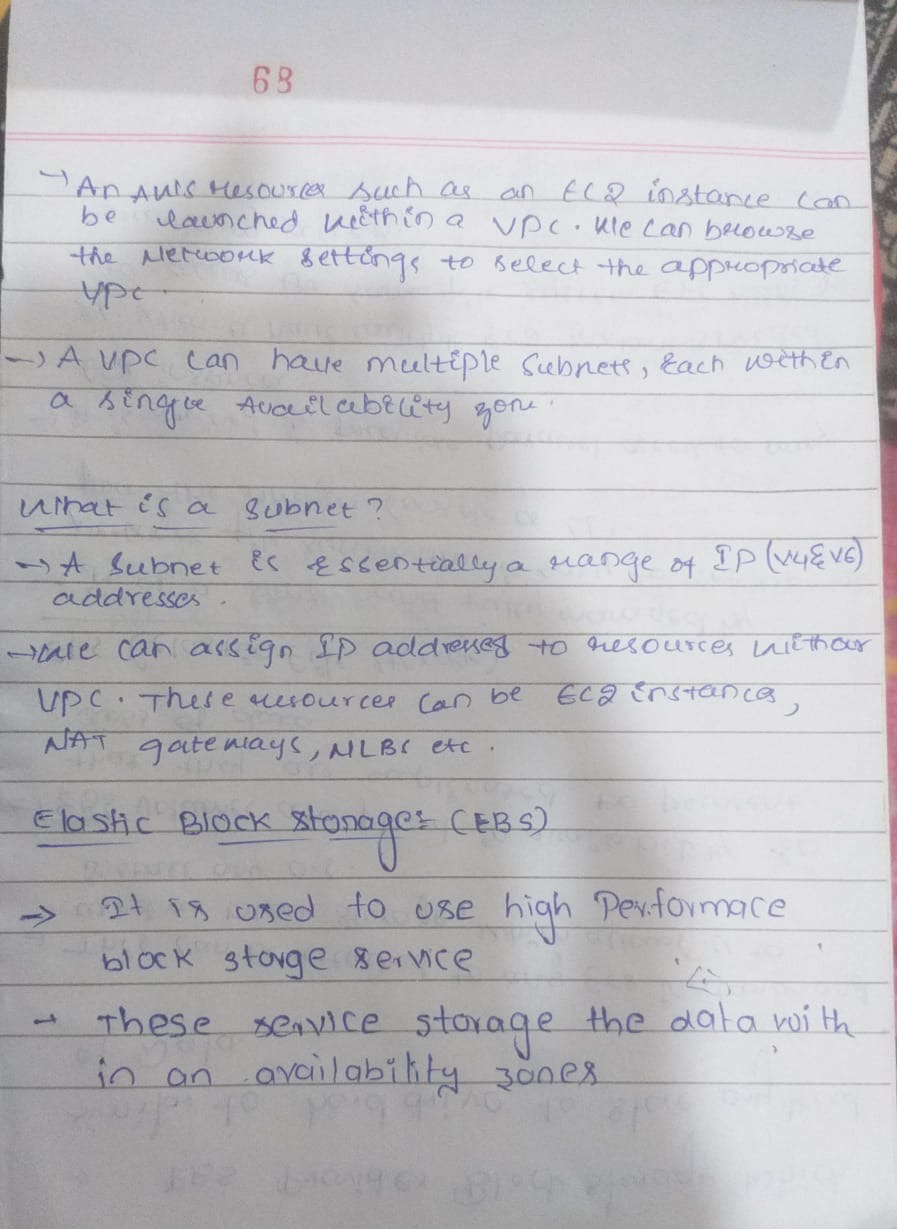 68
→ An AWS resources such as an EC2 instance can
be launched within a VPC. We can browse
the Network settings to select the appropriate
VPC.
→ A VPC can have multiple Subnets, Each within
a single Availability zone.
What is a Subnet?
→ A Subnet is Essentially a range of IP (V4&V6)
addresses.
→ We can assign IP addresses to resources within our
VPC. These resources can be EC2 instances,
NAT gateways, NLBS etc.
Elastic Block Storage: (EBS)
→ It is used to use high Performace
block storge service
→ These service storage the data with
in an availability zones